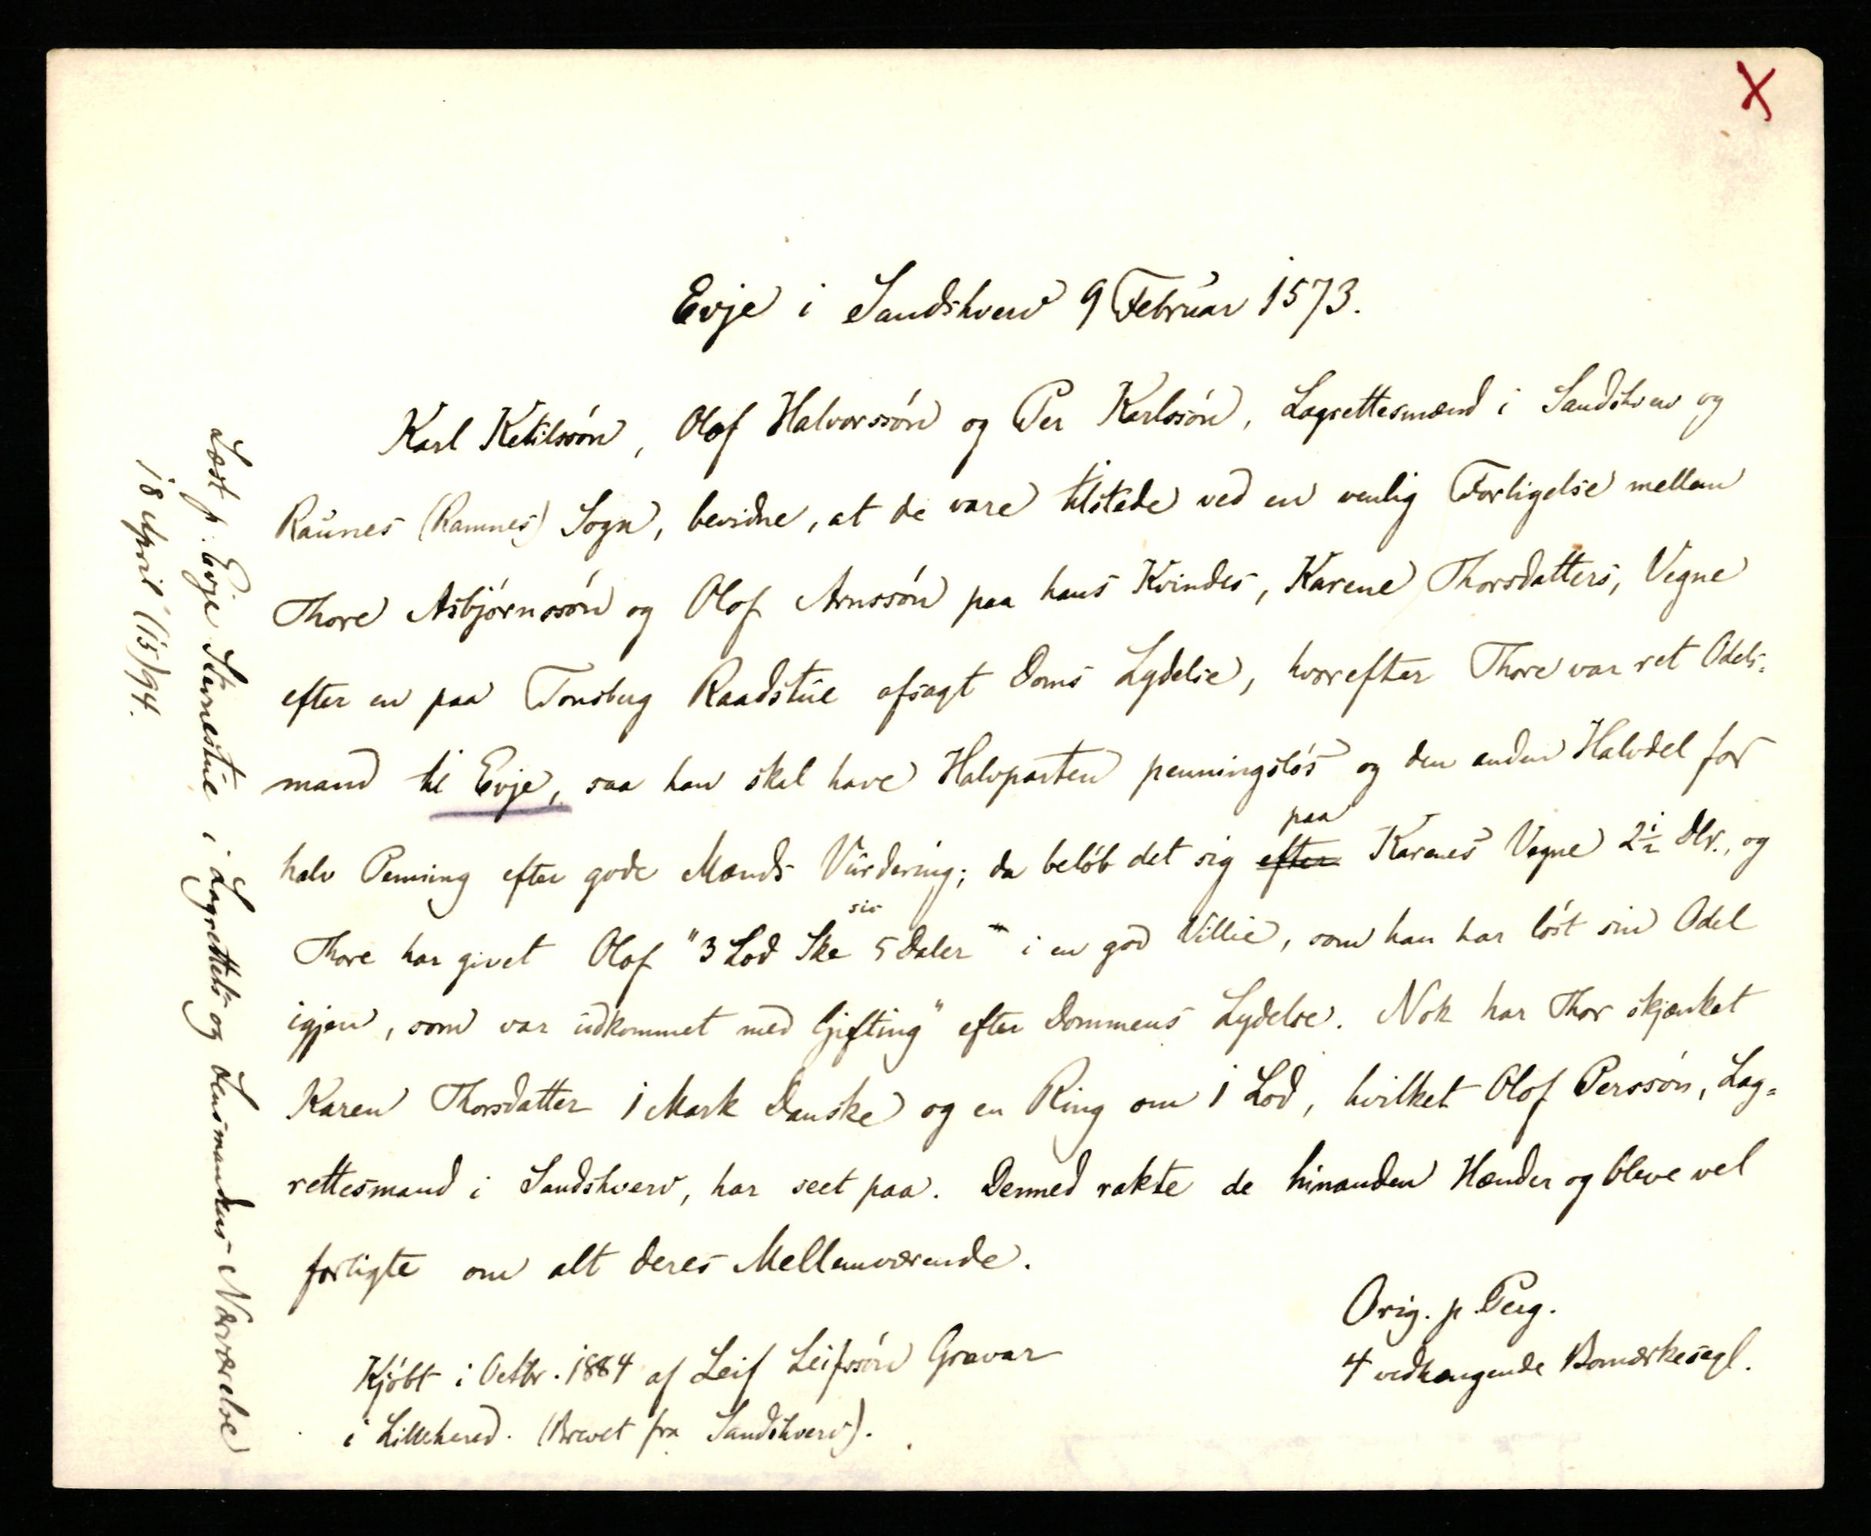 X
Evje i Sandshverv 9 Februar 1573.
Karl Ketilssøn, Olof Halvorssøn og Per Karlssøn, Lagrettesmænd i Sandshverv og
Raunes (Ramnes) Sogn, bevidne, at de vare tilstede ved en venlig Forligelse mellem
Thore Asbjørnssøn og Olof Arnssøn paa hans Kvindes, Karene Thorsdatters, Vegne
efter en paa Tonsberg Raadstue afsagt Doms Lydelse, hvorefter Thore var ret Odels-
mand til Evje, saa han skal have Halvparten penningsløs og den anden Halvdel for
halv Penning efter gode Mænds Vurdering; da beløb det sig efter paa Karenes Vegne 2½ Dlr., og
Thore har givet Olof "3 Lod Ske sic 5 Daler" i en god Villie, som han har løst sin Odel
igjen, som var udkommet med Gifting" efter Dommens Lydelse. Nok har Thor skjænket
Karen Thorsdatter 1 Mark Danske og en Ring om 1 Lod, hvilket Olof Perssøn, Lag-
rettesmand i Sandshverv, har seet paa. Dermed rakte de hinanden Hænder og bleve vel
forligte om alt deres Mellemværende.
Orig. p. Perg.
4 vedhængende Bomærkesegl.
Kjøbt i Octbr. 1884 af Leif Leifssøn Gravar
i Lilleherred. (Brevet fra Sandshverv).
Læst p. Evje Stevnestue i Lagrettets og Lensmandens Nærværelse
18 April (15)94.